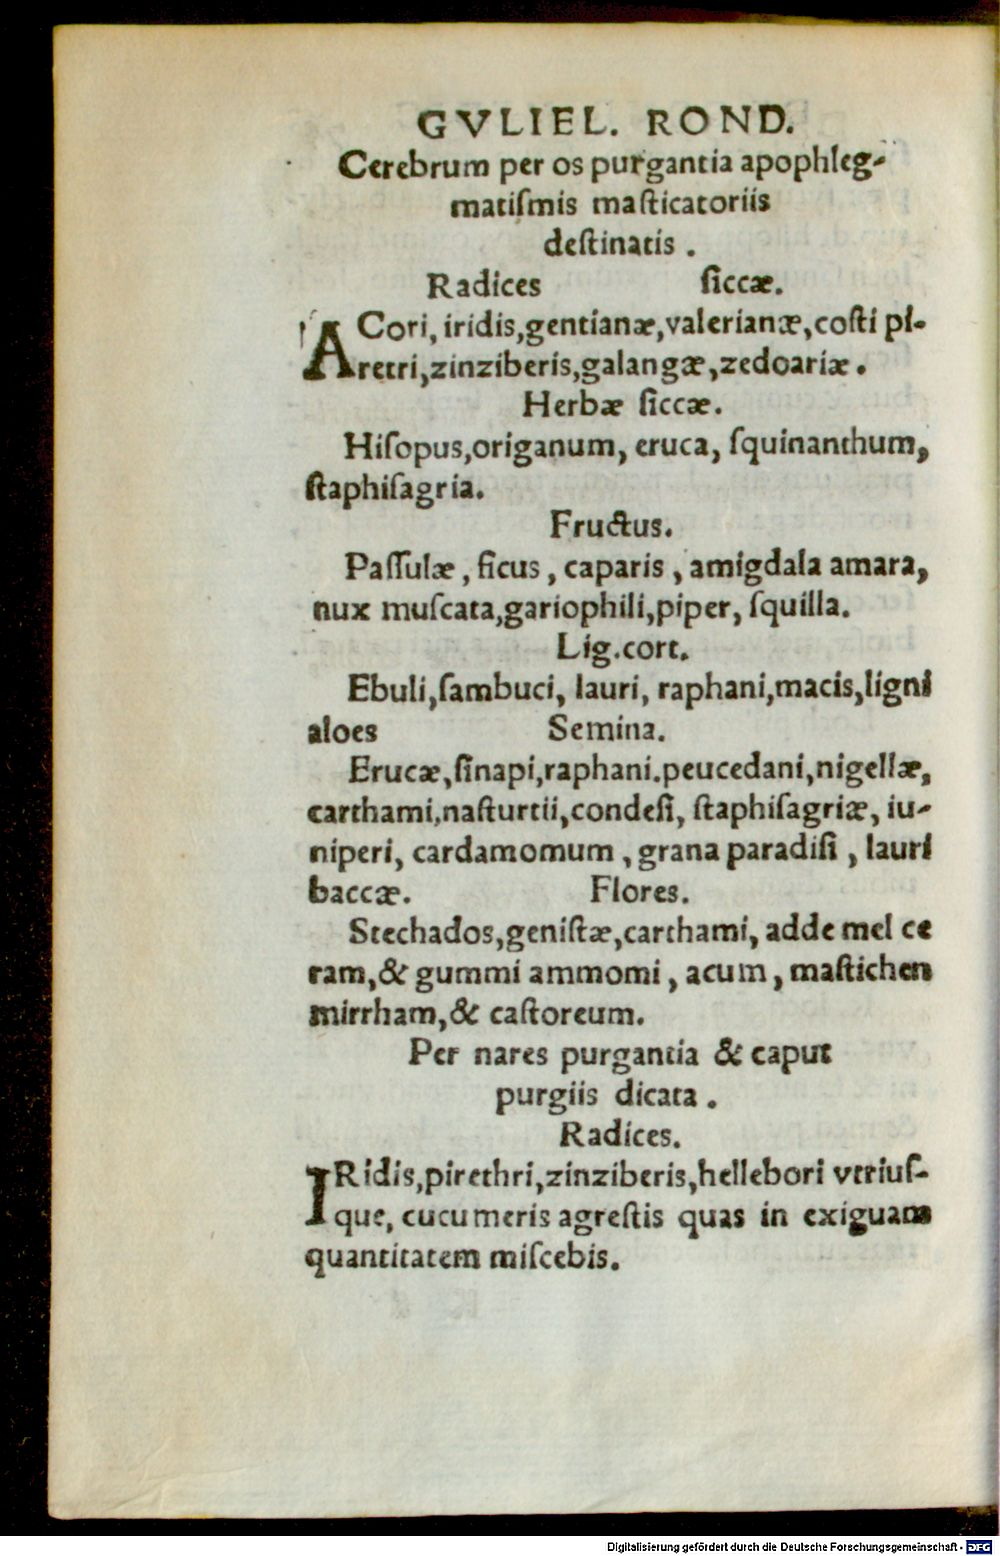 GVLIEL. ROND.
Cerebrum per os purgantia apophleg-
matiſmis maſticatoriis
deſtinatis.
Radices ſiccæ.
ACori, iridis, gentianæ, valerianæ, coſti pi-
retri, zinziberis, galangæ, zedoariæ.
Herbæ ſiccæ.
Hiſopus, origanum, eruca, ſquinanthum,
ſtaphiſagria.
Fructus.
Paſſulæ, ficus, caparis, amigdala amara,
nux muſcata, gariophili, piper, ſquilla.
Lig. cort.
Ebuli, ſambuci, lauri, raphani, macis, ligni
aloes Semina.
Erucæ, ſinapi, raphani. peucedani, nigellæ,
carthami, naſturtii, condeſi, ſtaphiſagriæ, iu-
niperi, cardamomum, grana paradiſi, lauri
baccæ. Flores.
Stechados, geniſtæ, carthami, adde mel ce
ram, & gummi ammomi, acum, maſtichen
mirrham, & caſtoreum.
Per nares purgantia & caput
purgiis dicata.
Radices.
IRidis, pirethri, zinziberis, hellebori vtriuſ-
que, cucumeris agreſtis quas in exiguam
quantitatem miſcebis.
Digitalisierung gefördert durch die Deutsche Forschungsgemeinschaft - DFG